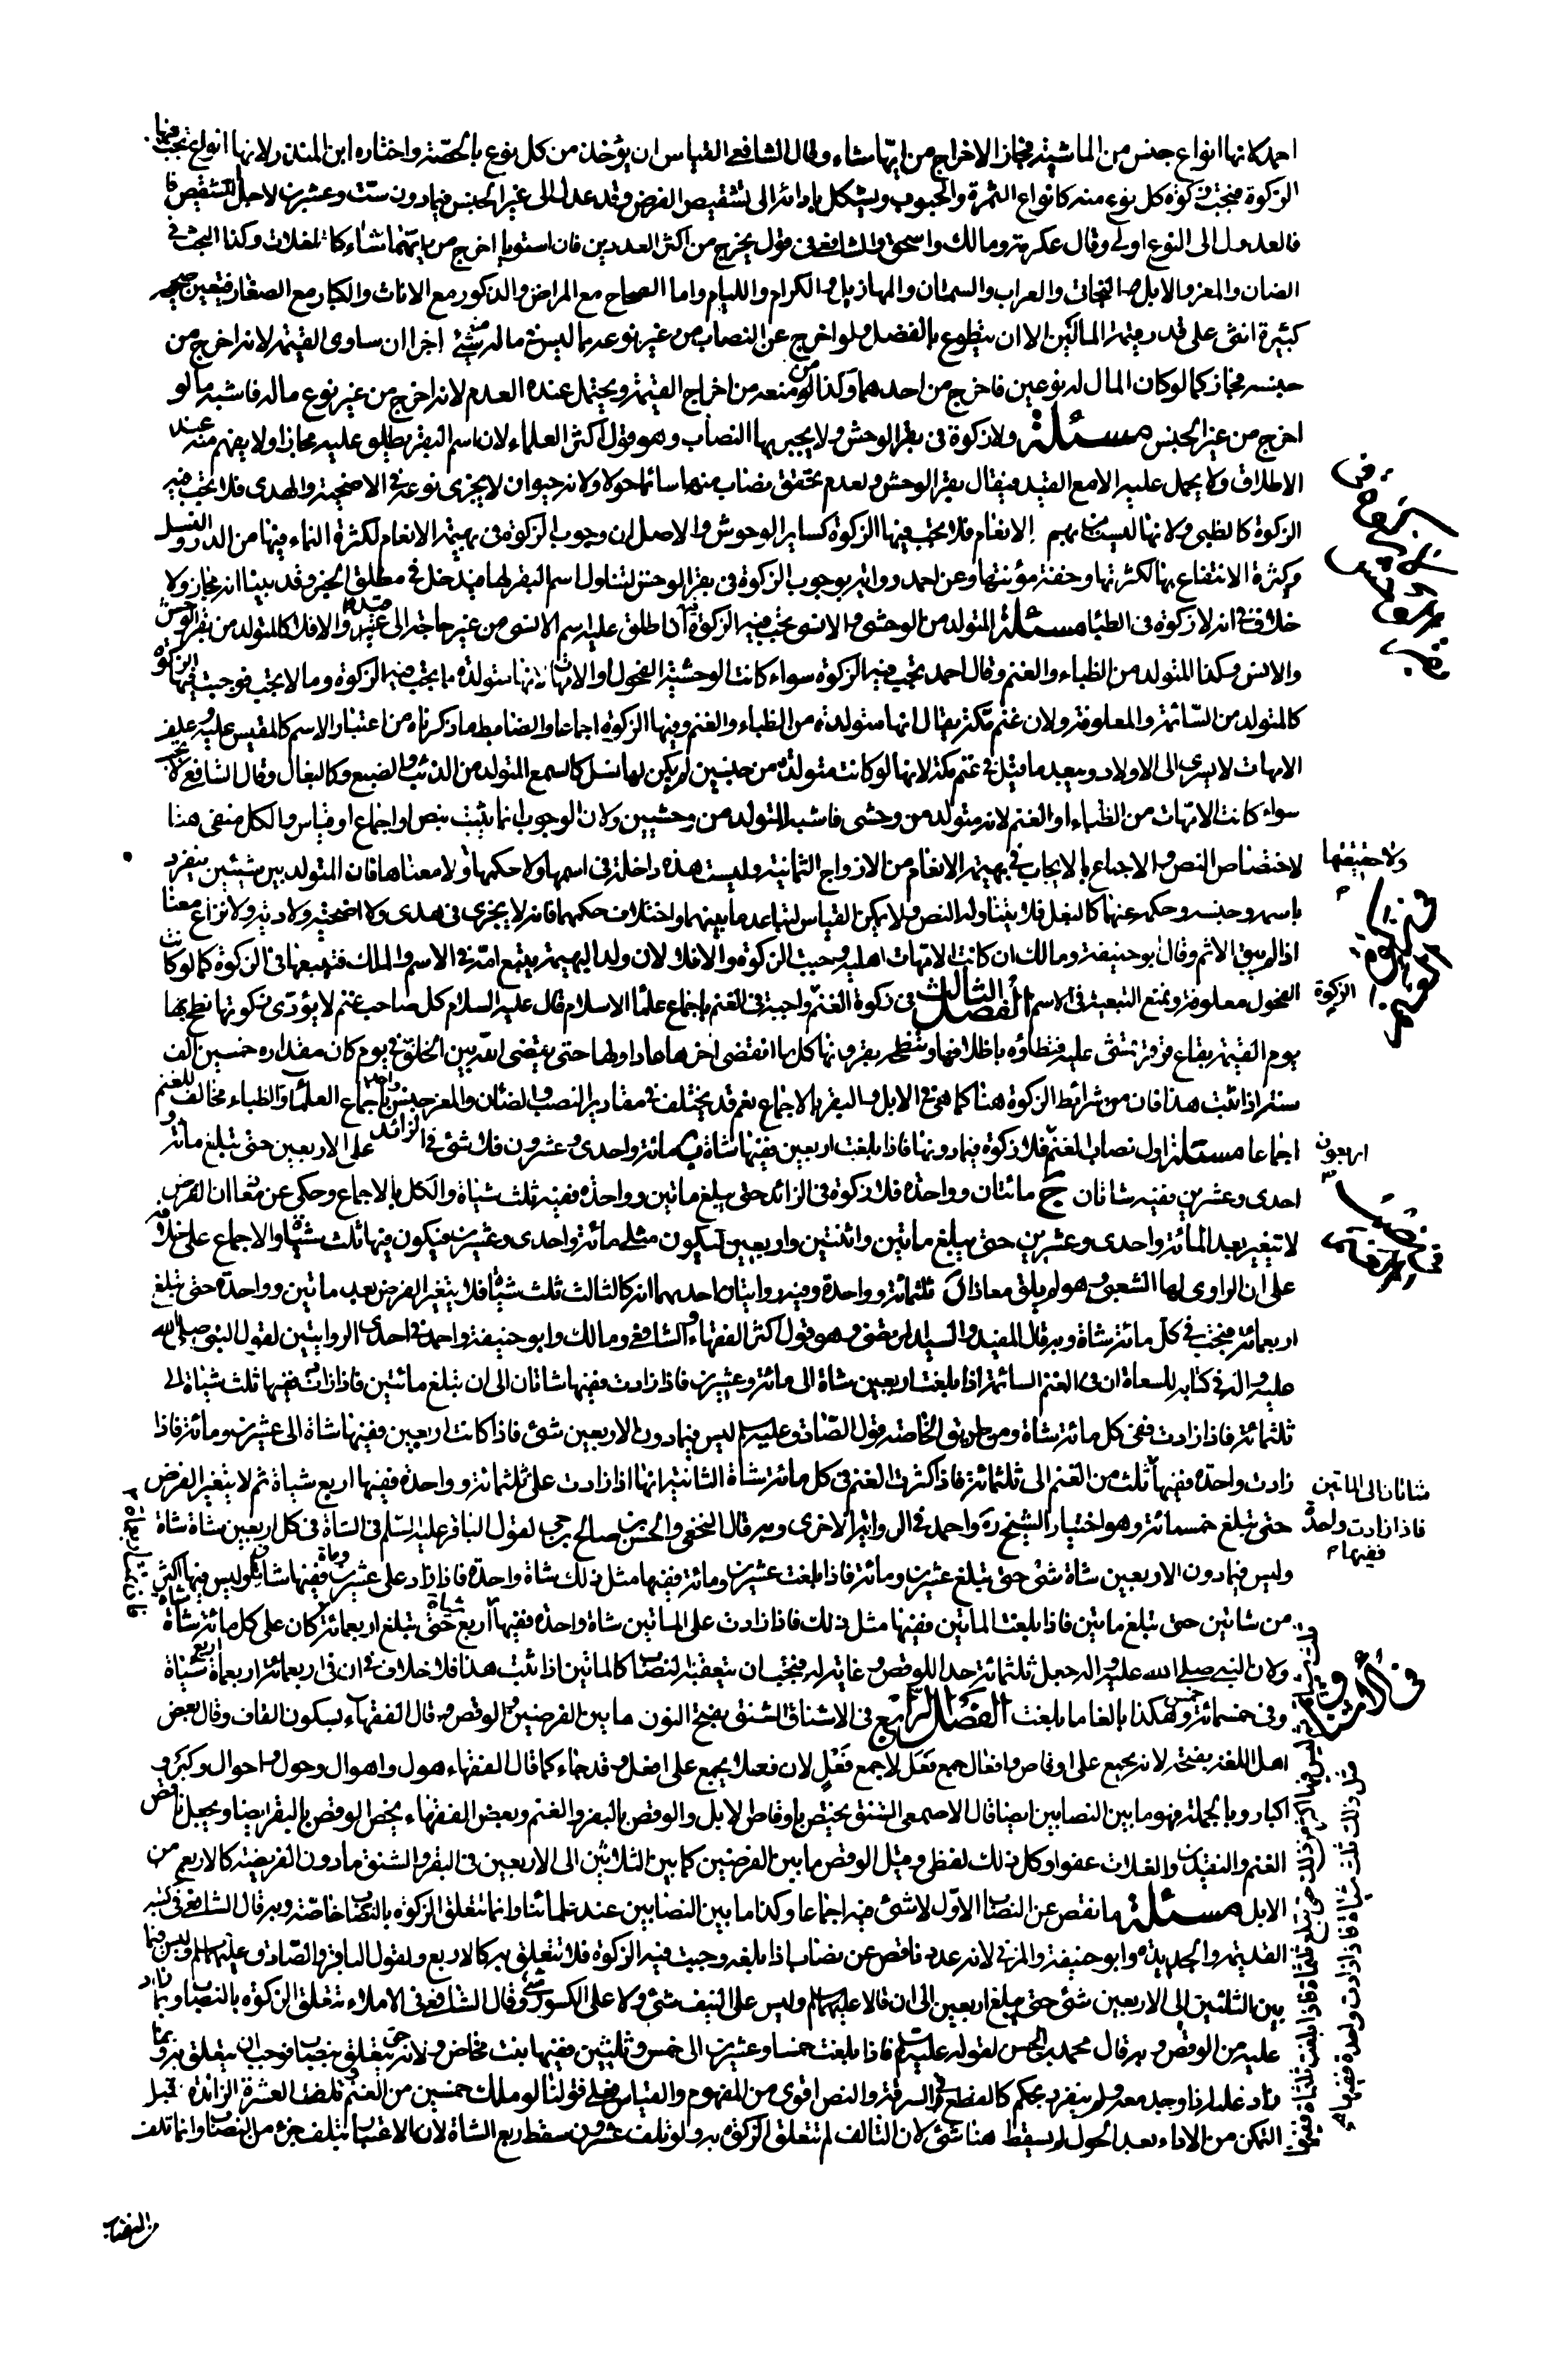 احمد لانها انواع جنس من الماشية فجاز الاخراج من ايّها شاء وقال الشافعي القياس ان يؤخذ من كل نوع بالحصّة واختاره ابن المنذر لانها انواع تجب فيها
الزكوة فتجب زكوة كل نوع منه كانواع الثمرة والحبوب ويشكل بادائه الى تشقيص الفرض وقد عدل الى غير الجنس فيما دون ست وعشرين لاجل التشقيص
فالعدول الى النوع اولى وقال عكرمة ومالك واسحق والشافعي في قول يخرج من اكثر العددين فان استويا اخرج من ايّهما شاء كالغلات وكذا البحث في
الضان والمعز والابل البخاتي والعراب والسمان والمهازيل والكرام واللئام واما الصحاح مع المراض والذكور مع الاناث والكبار مع الصغار فيتعين صحيحة
كبيرة انثى على قدر قيمة المالين الا ان يتطوع بالفضل ولو اخرج عن النصاب من غير نوعه ما ليس في ماله منه شئ اجزا ان ساوى القيمة لانه اخرج من
جنسه فجاز كما لو كان المال له نوعين فاخرج من احدهما وكذا لو منعه من اخراج القيمة ويحتمل عنده العدم لانه اخرج من غير نوع ماله فاشبه ما لو
اخرج من غير الجنس مسئلة ولا زكوة في بقر الوحش ولا يجبر بها النصاب وهو قول اكثر العلماء لان اسم البقر يطلق عليه مجازا ولا يفهم منه عند
الاطلاق ولا يحمل عليه الا مع القيد فيقال بقر الوحش ولعدم تحقق نصاب منها سائما حولا ولانه حيوان لا يجزى نوعه في الاضحية والهدى فلا تجب فيه
الزكوة كالظبى ولانها ليست من بهيمة الانعام فلا تجب فيها الزكوة كساير الوحوش والاصل ان وجوب الزكوة في بهيمة الانعام لكثرة النماء فيها من الدر والنسل
وكثرة الانتفاع بها لكثرتها وخفة مؤنتها وعن احمد رواية بوجوب الزكوة في بقر الوحش لتناول اسم البقر لها فيدخل في مطلق الخبر وقد بينا انه مجاز ولا
خلاف في انه لا زكوة في الظبا مسئلة المتولد من الوحشى والانسى تجب فيه الزكوة اذا اطلق عليه اسم الانسى من غير حاجة الى قيد والا فلا كالمتولد من بقر الوحش
والانس وكذا المتولد من الظباء والغنم وقال احمد تجب فيه الزكوة سواء كانت الوحشية الفحول او الامهات لانها متولدة مما تجب فيه الزكوة وما لا تجب فوجبت فيها الزكوة
كالمتولد من السّائمة والمعلوفة ولان غنم مكة يقال انها متولدة من الظباء والغنم وفيها الزكوة اجماعا والضابط ما ذكرناه من اعتبار الاسم كالمقيس عليه وعلف
الامهات لا يسرى الى الاولاد ويبعد ما قيل في غنم مكة لانها لو كانت متولدة من جنسين لم يكن لها نسل كالسمع المتولد من الذئب والضبع وكالبغال وقال الشافعي لا تجب
سواء كانت الامّهات من الظباء او الغنم لانه متولد من وحشى فاشبه المتولد من وحشيين ولان الوجوب انما يثبت بنص او اجماع او قياس والكل منفى هنا
لاختصاص النص والاجماع بالايجاب في بهيمة الانعام من الازواج الثمانية وليست هذه داخلة في اسمها ولا حكمها ولا معناها فان المتولد بين شيئين ينفرد
باسمه وجنسه وحكمه عنهما كالبغل فلا يتناوله النص ولا يمكن القياس لتباعد ما بينهما واختلاف حكمهما فانه لا يجزى في هدى ولا اضحية ولا دية ولا نزاع معنا
اذا لم يبق الاسم وقال ابو حنيفة ومالك ان كانت الامّهات اهلية وجبت الزكوة والا فلا لان ولد البهيمة يتبع امّه في الاسم والملك فتتبعها في الزكوة كما لو كانت
الفحول معلوفة ونمنع التبعية في الاسم الفصل الثالث في زكوة الغنم واجبة في الغنم باجماع علماء الاسلام قال عليه السلام كل صاحب غنم لا يؤدّى زكوتها بطح لها
يوم القيمة بقاع قرقر تمشى عليه فتطاؤه باظلافها وتنطحه بقرونها كلما انقضى اخرها عاد اولها حتى يقضى الله بين الخلق في يوم كان مقداره خمسين الف
سنة اذا ثبت هذا فان من شرائط الزكوة هنا كما هى في الابل والبقر بالاجماع نعم قد يختلف في مقادير النصب والضان والمعز جنس واحد باجماع العلماء والظباء مخالف للغنم
اجماعا مسئلة اول نصاب الغنم فلا زكوة فيما دونها فاذا بلغت اربعين ففيها شاة ب مائة واحدى وعشرون فلا شئ في الزائد على الاربعين حتى تبلغ مائة و
احدى وعشرين ففيه شاتان ج مائتان وواحدة فلا زكوة في الزائد حتى يبلغ ماتين وواحدة ففيه ثلث شياة والكل بالاجماع وحكى عن معاذ ان الفرض
لا يتغير بعد المائة واحدى وعشرين حتى يبلغ ماتين واثنتين واربعين ليكون مثلى مائة واحدى وعشرين فيكون فيها ثلث شياة والاجماع على خلافه
على ان الراوى لها الشعبى وهو لم يلق معاذا د ثلثمائة وواحدة وفيه روايتان احديهما انه كالثالث ثلث شياة فلا يتغير الفرض بعد ماتين وواحدة حتى تبلغ
اربعمائة فتجب في كل مائة شاة وبه قال المفيد والسيد المرتضى وهو قول اكثر الفقهاء والشافعي ومالك وابو حنيفة واحمد في احدى الروايتين لقول النبي صلى الله
عليه واله في كتابه للسعاة ان في الغنم السائمة اذا بلغت اربعين شاة الى مائة وعشرين فاذا زادت ففيها شاتان الى ان تبلغ مائتين فاذا زادت ففيها ثلث شياة الى
ثلثمائة فاذا زادت ففى كل مائة شاة ومن طريق الخاصة قول الصّادق عليه السلم ليس فيما دون الاربعين شئ فاذا كانت اربعين ففيها شاة الى عشرين ومائة فاذا
زادت واحدة ففيها ثلث من الغنم الى ثلثمائة فاذا كثرت الغنم في كل مائة شاة الثانية انها اذا زادت على ثلثمائة وواحدة ففيها اربع شياة ثم لا يتغير الفرض
حتى تبلغ خمسمائة وهو اختيار الشيخ ره واحمد في الرواية الاخرى وبه قال النخعي والحسن بن صالح بن حي لقول الباقر عليه السلم في الشاة في كل اربعين شاة شاة
وليس فيما دون الاربعين شاة شئ حتى تبلغ عشرين ومائة فاذا بلغت عشرين ومائة ففيها مثل ذلك شاة واحدة فاذا زاد على عشرين ومائة ففيها شاتان وليس فيها اكثر
من شاتين حتى تبلغ ماتين فاذا بلغت الماتين ففيها مثل ذلك فاذا زادت على الماتين شاة واحدة ففيها اربع حتى تبلغ اربعمائة كان على كل مائة شاة
ولان النبي صلى الله عليه واله جعل ثلثمائة حدا للوقص وغاية له فتجب ان يتعقبه النصاب كالماتين اذا ثبت هذا فلا خلاف ان في اربعمائة اربع شياة
وفى خمسمائة خمس وهكذا بالغا ما بلغت الفصل الرابع في الاشناق الشنق بفتح النون ما بين الفرضين والوقص قال الفقهاء بسكون القاف وقال بعض
اهل اللغة بفتحه لانه يجمع على اوقاص وافعال جمع فَعَل لا جمع فَعْل لان فعلا يجمع على افعل وقد جاء كما قال الفقهاء هول واهوال وحول واحوال وكبر و
اكبار وبالجملة فهو ما بين النصابين ايضا قال الاصمعى الشنق يختص باوقاص الابل والوقص بالبقر والغنم وبعض الفقهاء يخص الوقص بالبقر ايضا ويجعل ناقص
الغنم والنقدين والغلات عفوا وكل ذلك لفظى وقيل الوقص ما بين الفرضين كما بين الثلاثين الى الاربعين في البقر والشنق ما دون الفريضة كالاربع من
الابل مسئلة ما نقص عن النصاب الاوّل لا شئ فيه اجماعا وكذا ما بين النصابين عند علمائنا وانما تتعلق الزكوة بالنصاب خاصّة وبه قال الشافعي في كتبه
القديمة والجديدة وابو حنيفة والمزنى لانه عدد ناقص عن نصاب اذا بلغه وجبت فيه الزكوة فلا تتعلق به كالاربع ولقول الباقر والصّادق عليهما السلم وليس فيما
بين الثلثين الى الاربعين شئ حتى يبلغ اربعين الى ان قالا عليهما السلم وليس على النيف شئ ولا على الكسور شئ وقال الشافعي في الاملاء تتعلق الزكوة بالنصاب وبما زاد
عليه من الوقص وبه قال محمد بن الحسن لقوله عليه السلم فاذا بلغت خمسا وعشرين الى خمس وثلثين ففيها بنت مخاض ولانه حق يتعلق بنصاب فوجب ان يتعلق به وبما
زاد عليه اذا وجد معه ولم ينفرد بحكم كالقطع في السرقة والنص اقوى من المفهوم والقياس فعلى قولنا لو ملك خمسين من الغنم وتلفت العشرة الزائدة قبل
التمكن من الاداء بعد الحول لم يسقط هنا شئ لان التالف لم تتعلق الزكوة به ولو تلف عشرون سقط ربع الشاة لان الاعتبار بتلف جزء من النصاب وانما تلف
من النصاب
ولا حقيقتها
الزكوة
اربعون
شاتان الى الماتين
فاذا زادت واحدة
ففيها